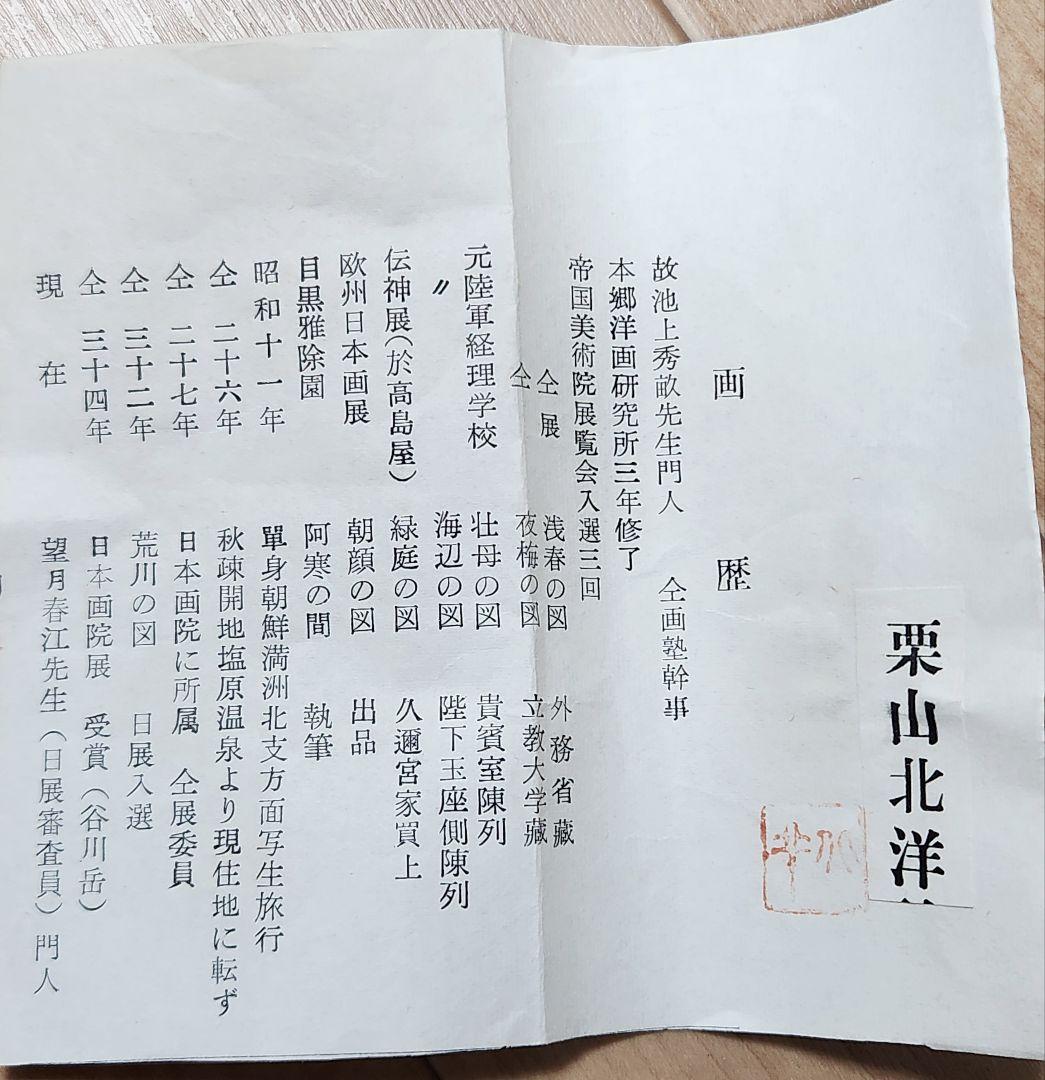 栗山北洋
画歴
故池上秀畝先生門人　仝画塾幹事
本郷洋画研究所三年修了
帝国美術院展覧会入選三回
仝展　浅春の図　外務省蔵
仝　夜梅の図　立教大学蔵
元陸軍経理学校　壮母の図　貴賓室陳列
〃　海辺の図　陛下玉座側陳列
伝神展（於高島屋）　緑庭の図　久邇宮家買上
欧州日本画展　朝顔の図　出品
目黒雅除園　阿寒の間　執筆
昭和十一年　單身朝鮮満洲北支方面写生旅行
仝二十六年　秋疎開地塩原温泉より現住地に転ず
仝二十七年　日本画院に所属　仝展委員
仝三十二年　荒川の図　日展入選
仝三十四年　日本画院展　受賞（谷川岳）
現在　望月春江先生（日展審査員）門人